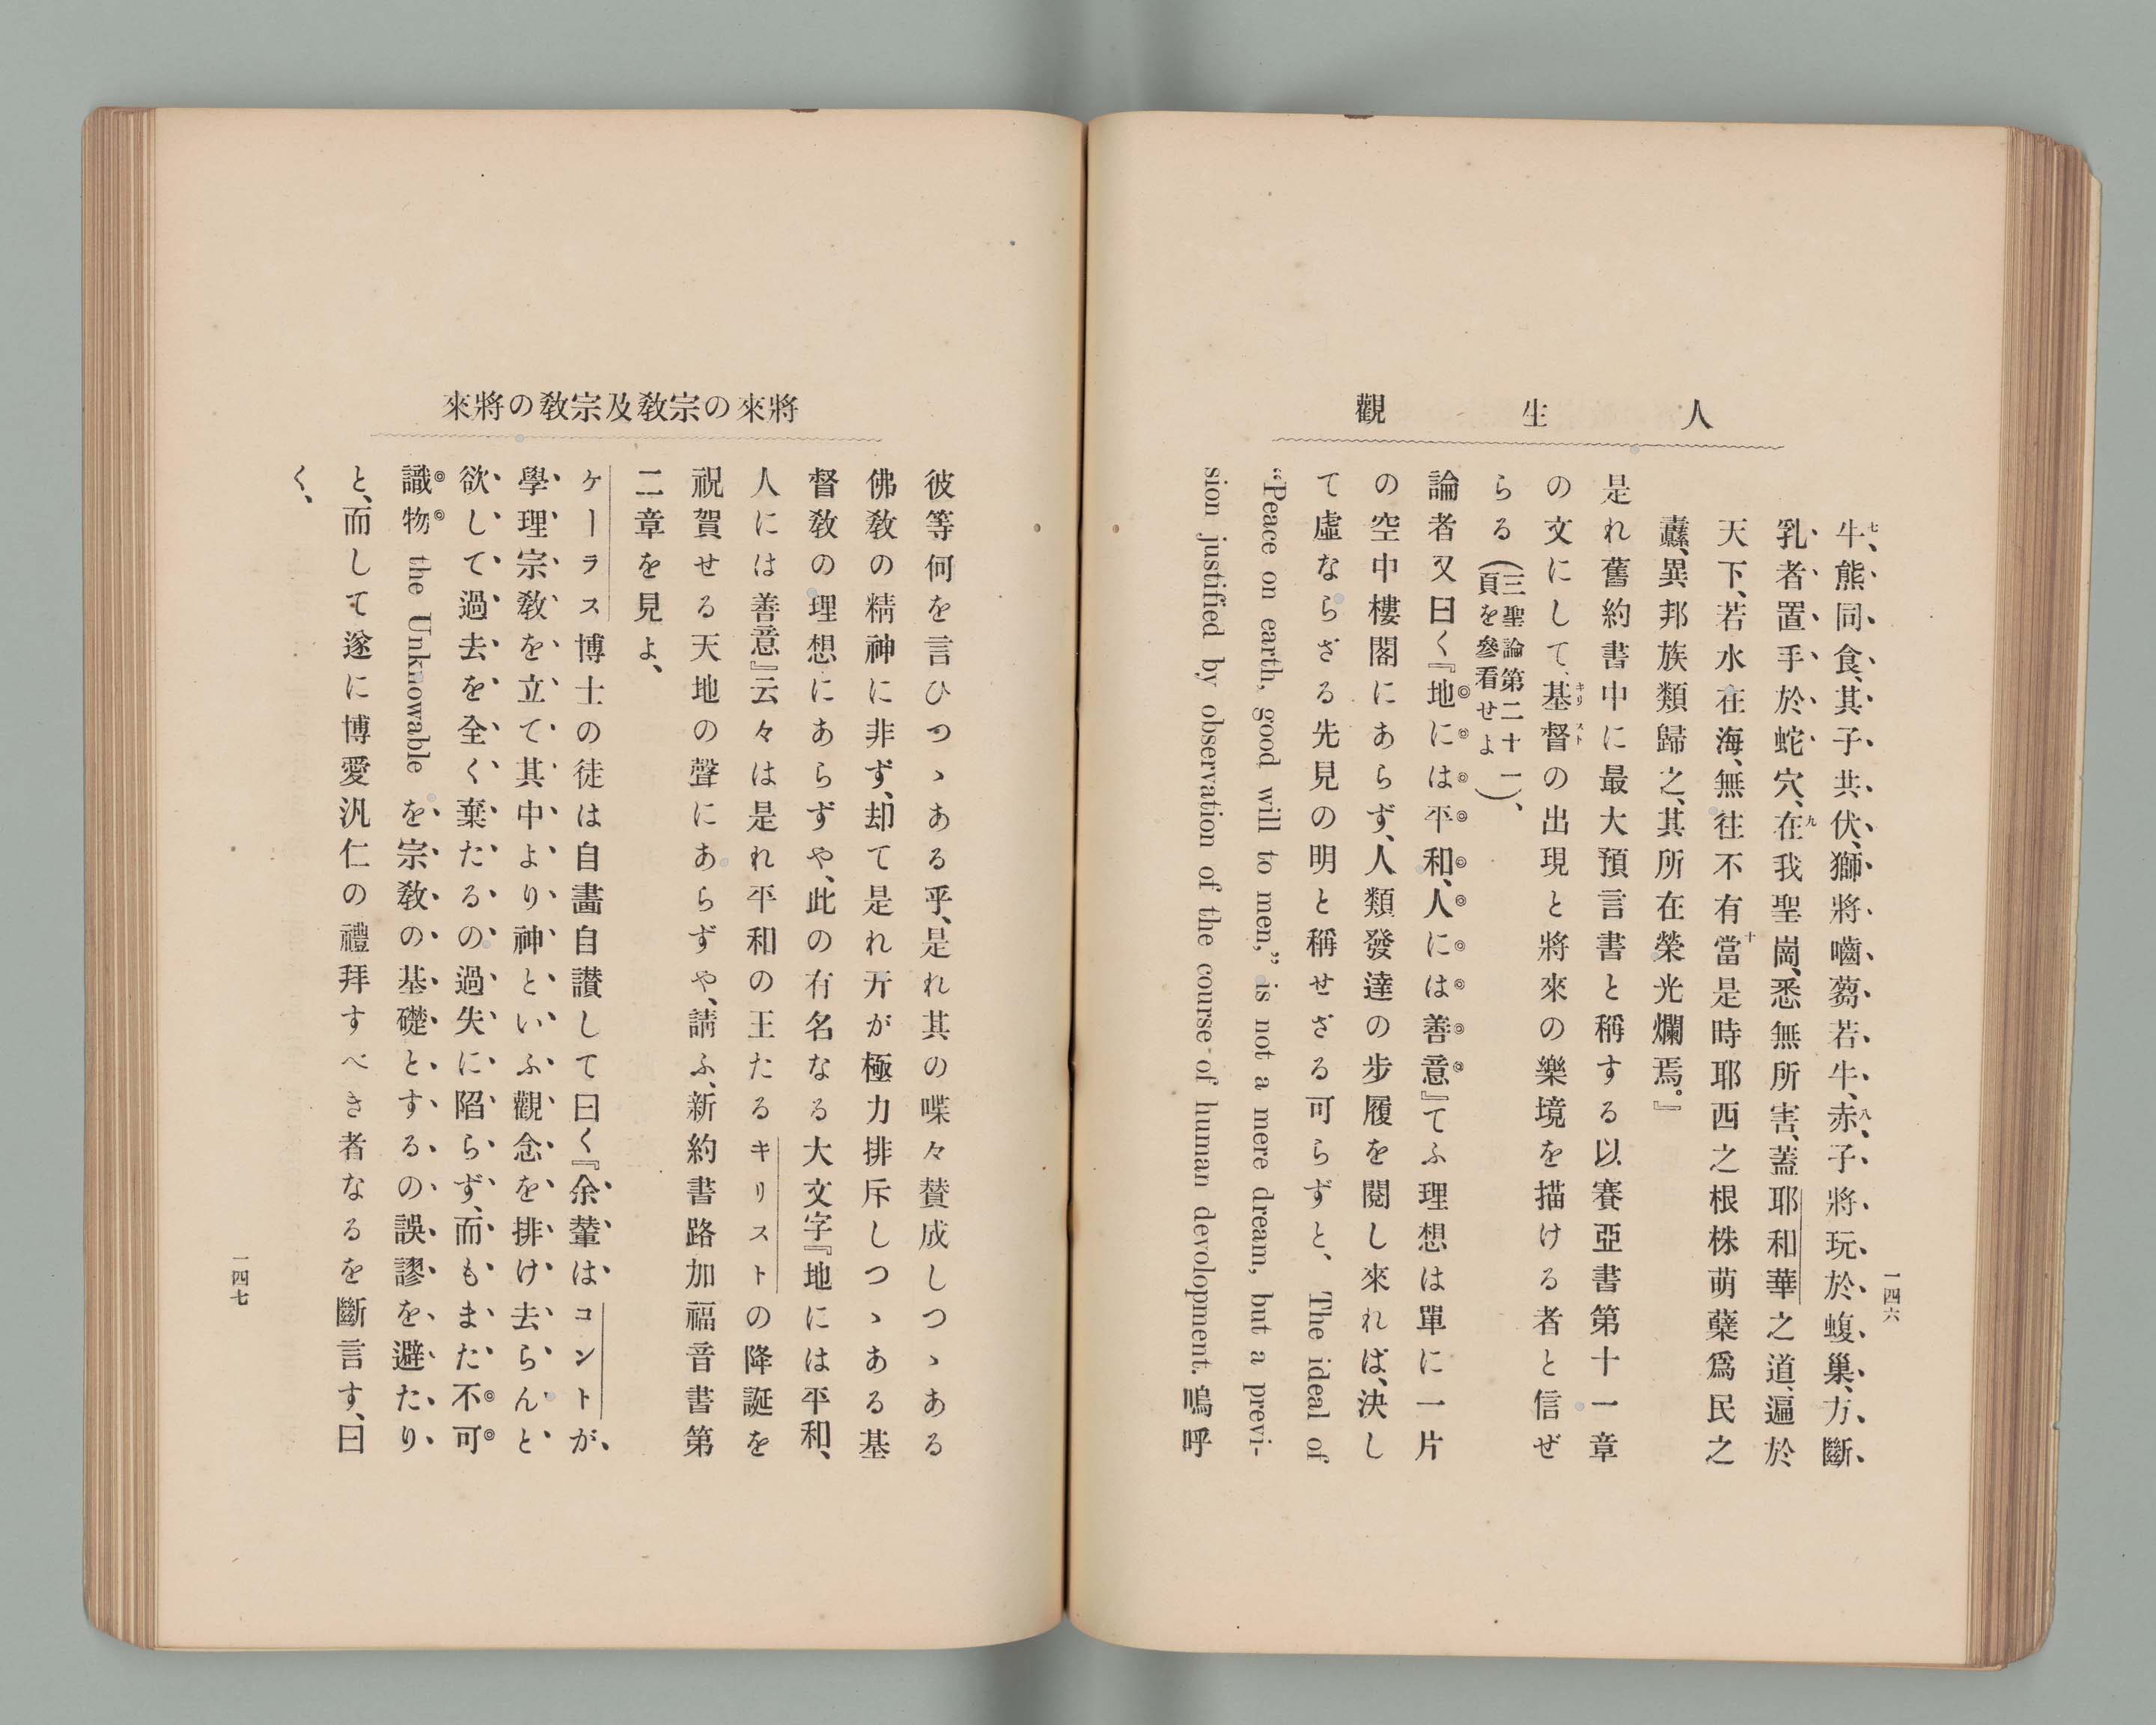 人生觀
一四六
七牛、熊同食、其子共伏、獅將嚙蒭若牛、八赤子將玩於蝮巢、方斷
乳者置手於蛇穴、九在我聖崗、悉無所害、蓋耶和華之道、遍於
天下、若水在海、無往不有十當是時耶西之根株萌蘖爲民之
纛、異邦族類歸之、其所在榮光爛焉。』
是れ舊約書中に最大預言書と稱する以賽亞書第十一章
の文にして、基督の出現と將來の樂境を描ける者と信ぜ
らる(三聖論第二十一頁を參看せよ)、
論者又曰く『地には平和、人には善意』てふ理想は單に一片
の空中樓閣にあらず、人類發達の步履を閱し來れば、決し
て虛ならざる先見の明と稱せざる可らずと、The ideal of
“Peace on earth, good will to men,” is not a mere dream, but a previ-
sion justified by observation of the course of human devolopment. 嗚呼
將來の宗敎及宗敎の將來
彼等何を言ひつゝある乎、是れ其の喋々贊成しつゝある
佛敎の精神に非ず、却て是れ夰が極力排斥しつゝある基
督敎の理想にあらずや、此の有名なる大文字『地には平和、
人には善意』云々は是れ平和の王たるキリストの降誕を
祝賀せる天地の聲にあらずや、請ふ、新約書路加福音書第
二章を見よ、
ケーラス博士の徒は自畵自讃して曰く『余輩はコントが、
學理宗敎を立て其中より神といふ觀念を排け去らんと
欲して過去を全く棄たるの過失に陷らず、而もまた不可
識物 the Unknowable を宗敎の基礎とするの誤謬を避たり
と、而して遂に博愛汎仁の禮拜すべき者なるを斷言す、曰
く、
一四七